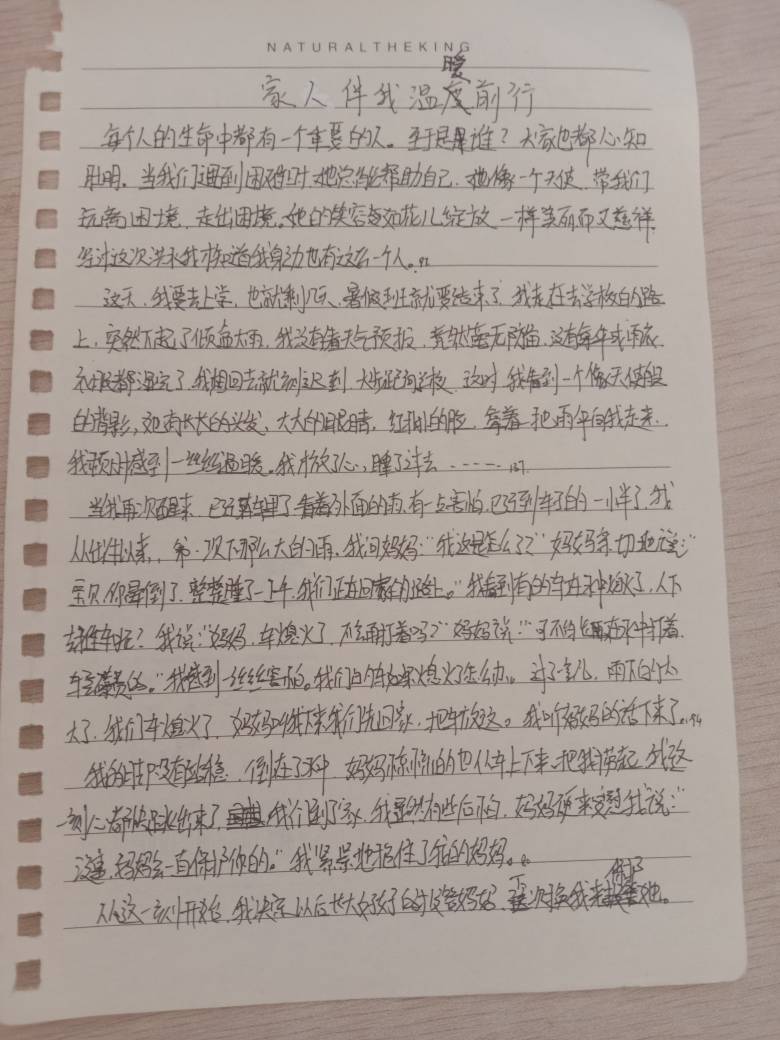 NATURALTHEKING
暖
家人伴我温度前行
每个人的生命中都有一个重要的人。至于是谁？大家也都心知
肚明。当我们遇到困难时她总能帮助自己，她像一个天使，带我们
玩离困境，走出困境。她的笑容每如花儿绽放一样美丽而又慈祥，
经过这次洪水我才知道我身边也有这么一个人。
这天，我要去上学，也就剩几天，暑假班就要结束了，我走在去学校的路
上，突然下起了倾盆大雨，我没有看天气预报，竟然毫无防备，没有拿伞或雨衣，
衣服都湿完了，我想回去就会迟到，大步走向学校，这时，我看到一个像天使般
的背影，她有长长的头发，大大的眼睛，红扑扑的脸，拿着一把雨伞向我走来，
我顿时感到一丝丝温暖。我才放了心，睡了过去……
当我再次醒来，已经在车里了，看着外面的雨，有一点害怕，已经到车子的一半了，我
从出生以来，第一次下那么大的雨，我问妈妈：“我这是怎么了？”妈妈亲切地说：“
宝贝，你晕倒了，整整睡了一上午，我们正在回家的路上。”我看到有的车在水中熄火了，人下
去推车呢？我说：“妈妈，车熄火了，不能再打着吗？”妈妈说：“可不能，再在水中打着，
车会报废的。”我感到一丝丝害怕。我们的车如果熄火了怎么办。过了会儿，雨下的太
大了，我们车熄火了，妈妈叫我下来我们先回家，把车放这。我听妈妈的话下来了。
我的脚没有站稳，倒在了水中，妈妈惊慌的也从车上下来，把我抱起，我这
一刻心都快跳出来了，我们到了家，我显然有些后怕，妈妈便来安慰我说：“
没事，妈妈会一直保护你的。”我紧紧地抱住了我的妈妈。
保护
从这一刻开始，我决定以后长大好好的报答妈妈，下次换我来她。